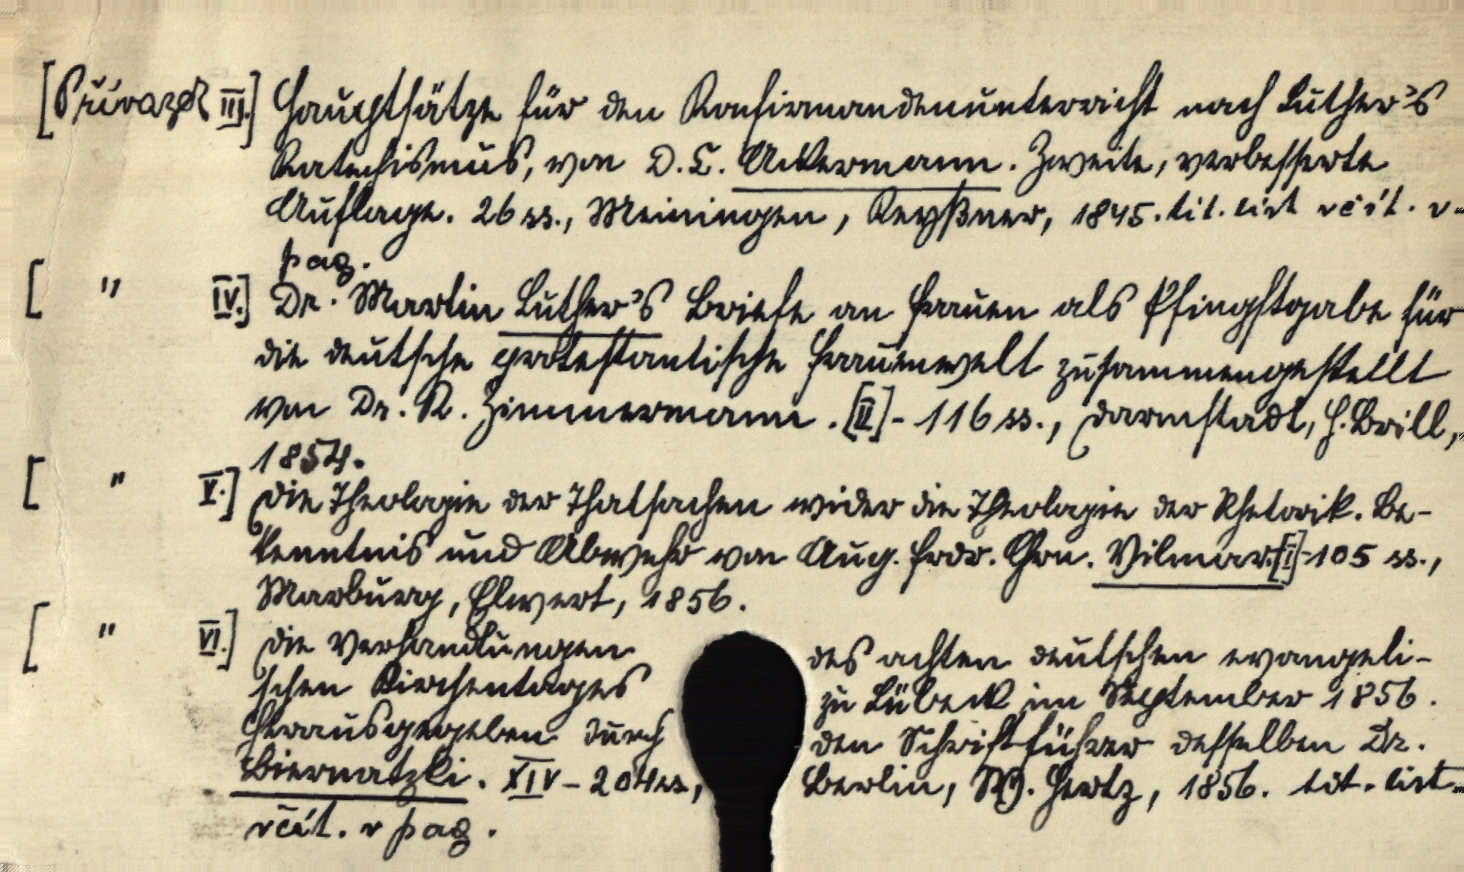 [Přívazek III.] Hauptsätze für den Konfirmandenunterricht nach Luther's
Katechismus, von D. C. Ackermann. Zweite, verbesserte
Auflage. 26 ss., Meiningen, Keyßner, 1845. tit. list včít. v
pag.
[ " IV.] Dr. Martin Luther's Briefe an Frauen als Pfingstgabe für
die deutsche protestantische Frauenwelt zusammengestellt
von Dr. K. Zimmermann. [II]-116 ss., Darmstadt, H. Brill,
1854.
[ " V.] Die Theologie der Thatsachen wider die Theologie der Rhetorik. Be-
kenntnis und Abwehr von Aug. Frdr. Chrn. Vilmar. [I]-105 ss.,
Marburg, Elwert, 1856.
[ " VI.] Die Verhandlungen des achten deutschen evangeli-
schen Kirchentages zu Lübeck im September 1856.
Herausgegeben durch den Schriftführer desselben Dr.
Biernatzki. XIV-204 ss., Berlin, W. Hertz, 1856. tit. list
včít. v pag.